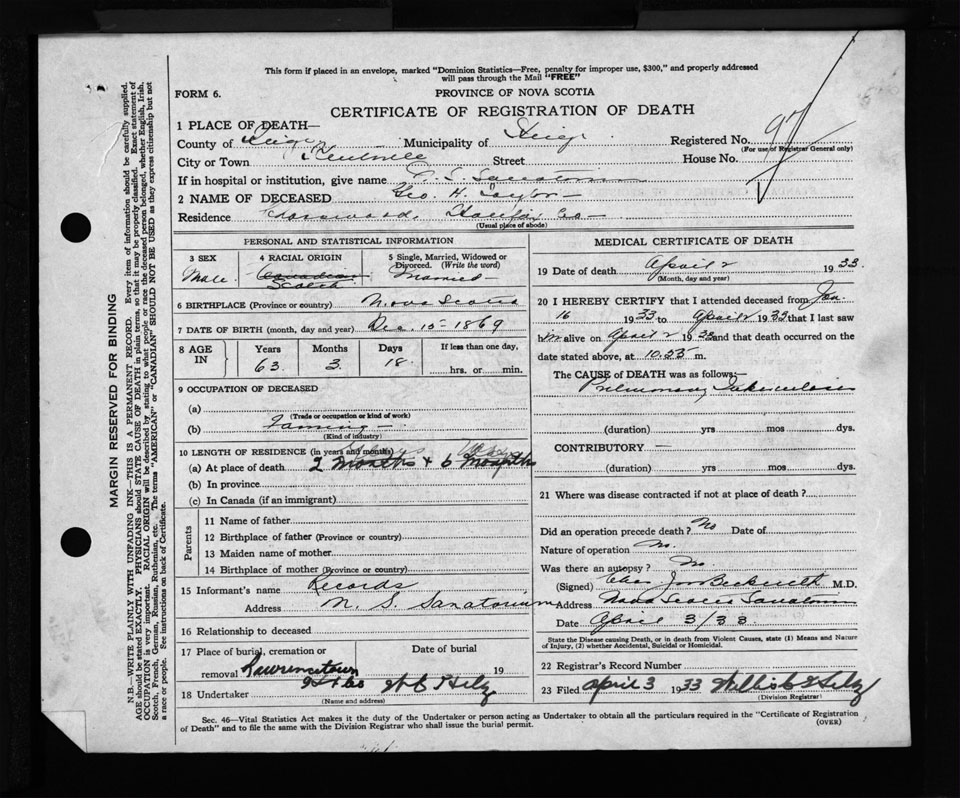 This form if placed in an envelope, marked "Dominion Statistics—Free, penalty for improper use, $300," and properly addressed
will pass through the Mail "FREE"
FORM 6.
PROVINCE OF NOVA SCOTIA
CERTIFICATE OF REGISTRATION OF DEATH
1 PLACE OF DEATH—
County of Kings Municipality of Kings Registered No. 97
(For use of Registrar General only)
City or Town Kentville Street House No.
If in hospital or institution, give name N. S. Sanatorium
2 NAME OF DECEASED Geo. H. Taylor
Residence Halifax Co
(Usual place of abode)
PERSONAL AND STATISTICAL INFORMATION
3 SEX
Male
4 RACIAL ORIGIN
Canadian
Scotch
5 Single, Married, Widowed or
Divorced. (Write the word)
Married
6 BIRTHPLACE (Province or country) Nova Scotia
7 DATE OF BIRTH (month, day and year) Dec. 15-1869
8 AGE IN
Years Months Days If less than one day,
63. 3. 18 hrs. or min.
9 OCCUPATION OF DECEASED
(a)
(Trade or occupation or kind of work)
(b) Farming
(Kind of industry)
10 LENGTH OF RESIDENCE (in years and months)
(a) At place of death 2 months +
(b) In province
(c) In Canada (if an immigrant)
Parents
11 Name of father
12 Birthplace of father (Province or country)
13 Maiden name of mother
14 Birthplace of mother (Province or country)
15 Informant's name Records
Address N. S. Sanatorium
16 Relationship to deceased
17 Place of burial, cremation or Date of burial
removal Lawrencetown 19
18 Undertaker
(Name and address)
MEDICAL CERTIFICATE OF DEATH
19 Date of death April 2 1933.
(Month, day and year)
20 I HEREBY CERTIFY that I attended deceased from Jan.
16 1933 to April 2 1933 that I last saw
him alive on April 2 1933 and that death occurred on the
date stated above, at 10.55 m.
The CAUSE of DEATH was as follows:—
Pulmonary Tuberculosis
(duration) yrs mos dys.
CONTRIBUTORY —
(duration) yrs mos dys.
21 Where was disease contracted if not at place of death?
Did an operation precede death? No Date of
Nature of operation No.
Was there an autopsy? No.
(Signed) Beckwith M.D.
Address Nova Scotia Sanatorium
Date April 3/33
State the Disease causing Death, or in death from Violent Causes, state (1) Means and Nature
of Injury, (2) whether Accidental, Suicidal or Homicidal.
22 Registrar's Record Number
23 Filed April 3 1933
(Division Registrar)
Sec. 46—Vital Statistics Act makes it the duty of the Undertaker or person acting as Undertaker to obtain all the particulars required in the "Certificate of Registration
of Death" and to file the same with the Division Registrar who shall issue the burial permit.
(OVER)
MARGIN RESERVED FOR BINDING
N.B.—WRITE PLAINLY WITH UNFADING INK—THIS IS A PERMANENT RECORD. Every item of information should be carefully supplied.
AGE should be stated EXACTLY. PHYSICIANS should STATE CAUSE OF DEATH in plain terms, so that it may be properly classified. Exact statement of
OCCUPATION is very important. RACIAL ORIGIN will be described by stating to what people or race the deceased person belonged, whether English, Irish,
Scotch, French, German, Russian, Ruthenian, etc. The terms "AMERICAN" or "CANADIAN" SHOULD NOT BE USED as they express citizenship but not
a race or people. See instructions on back of Certificate.